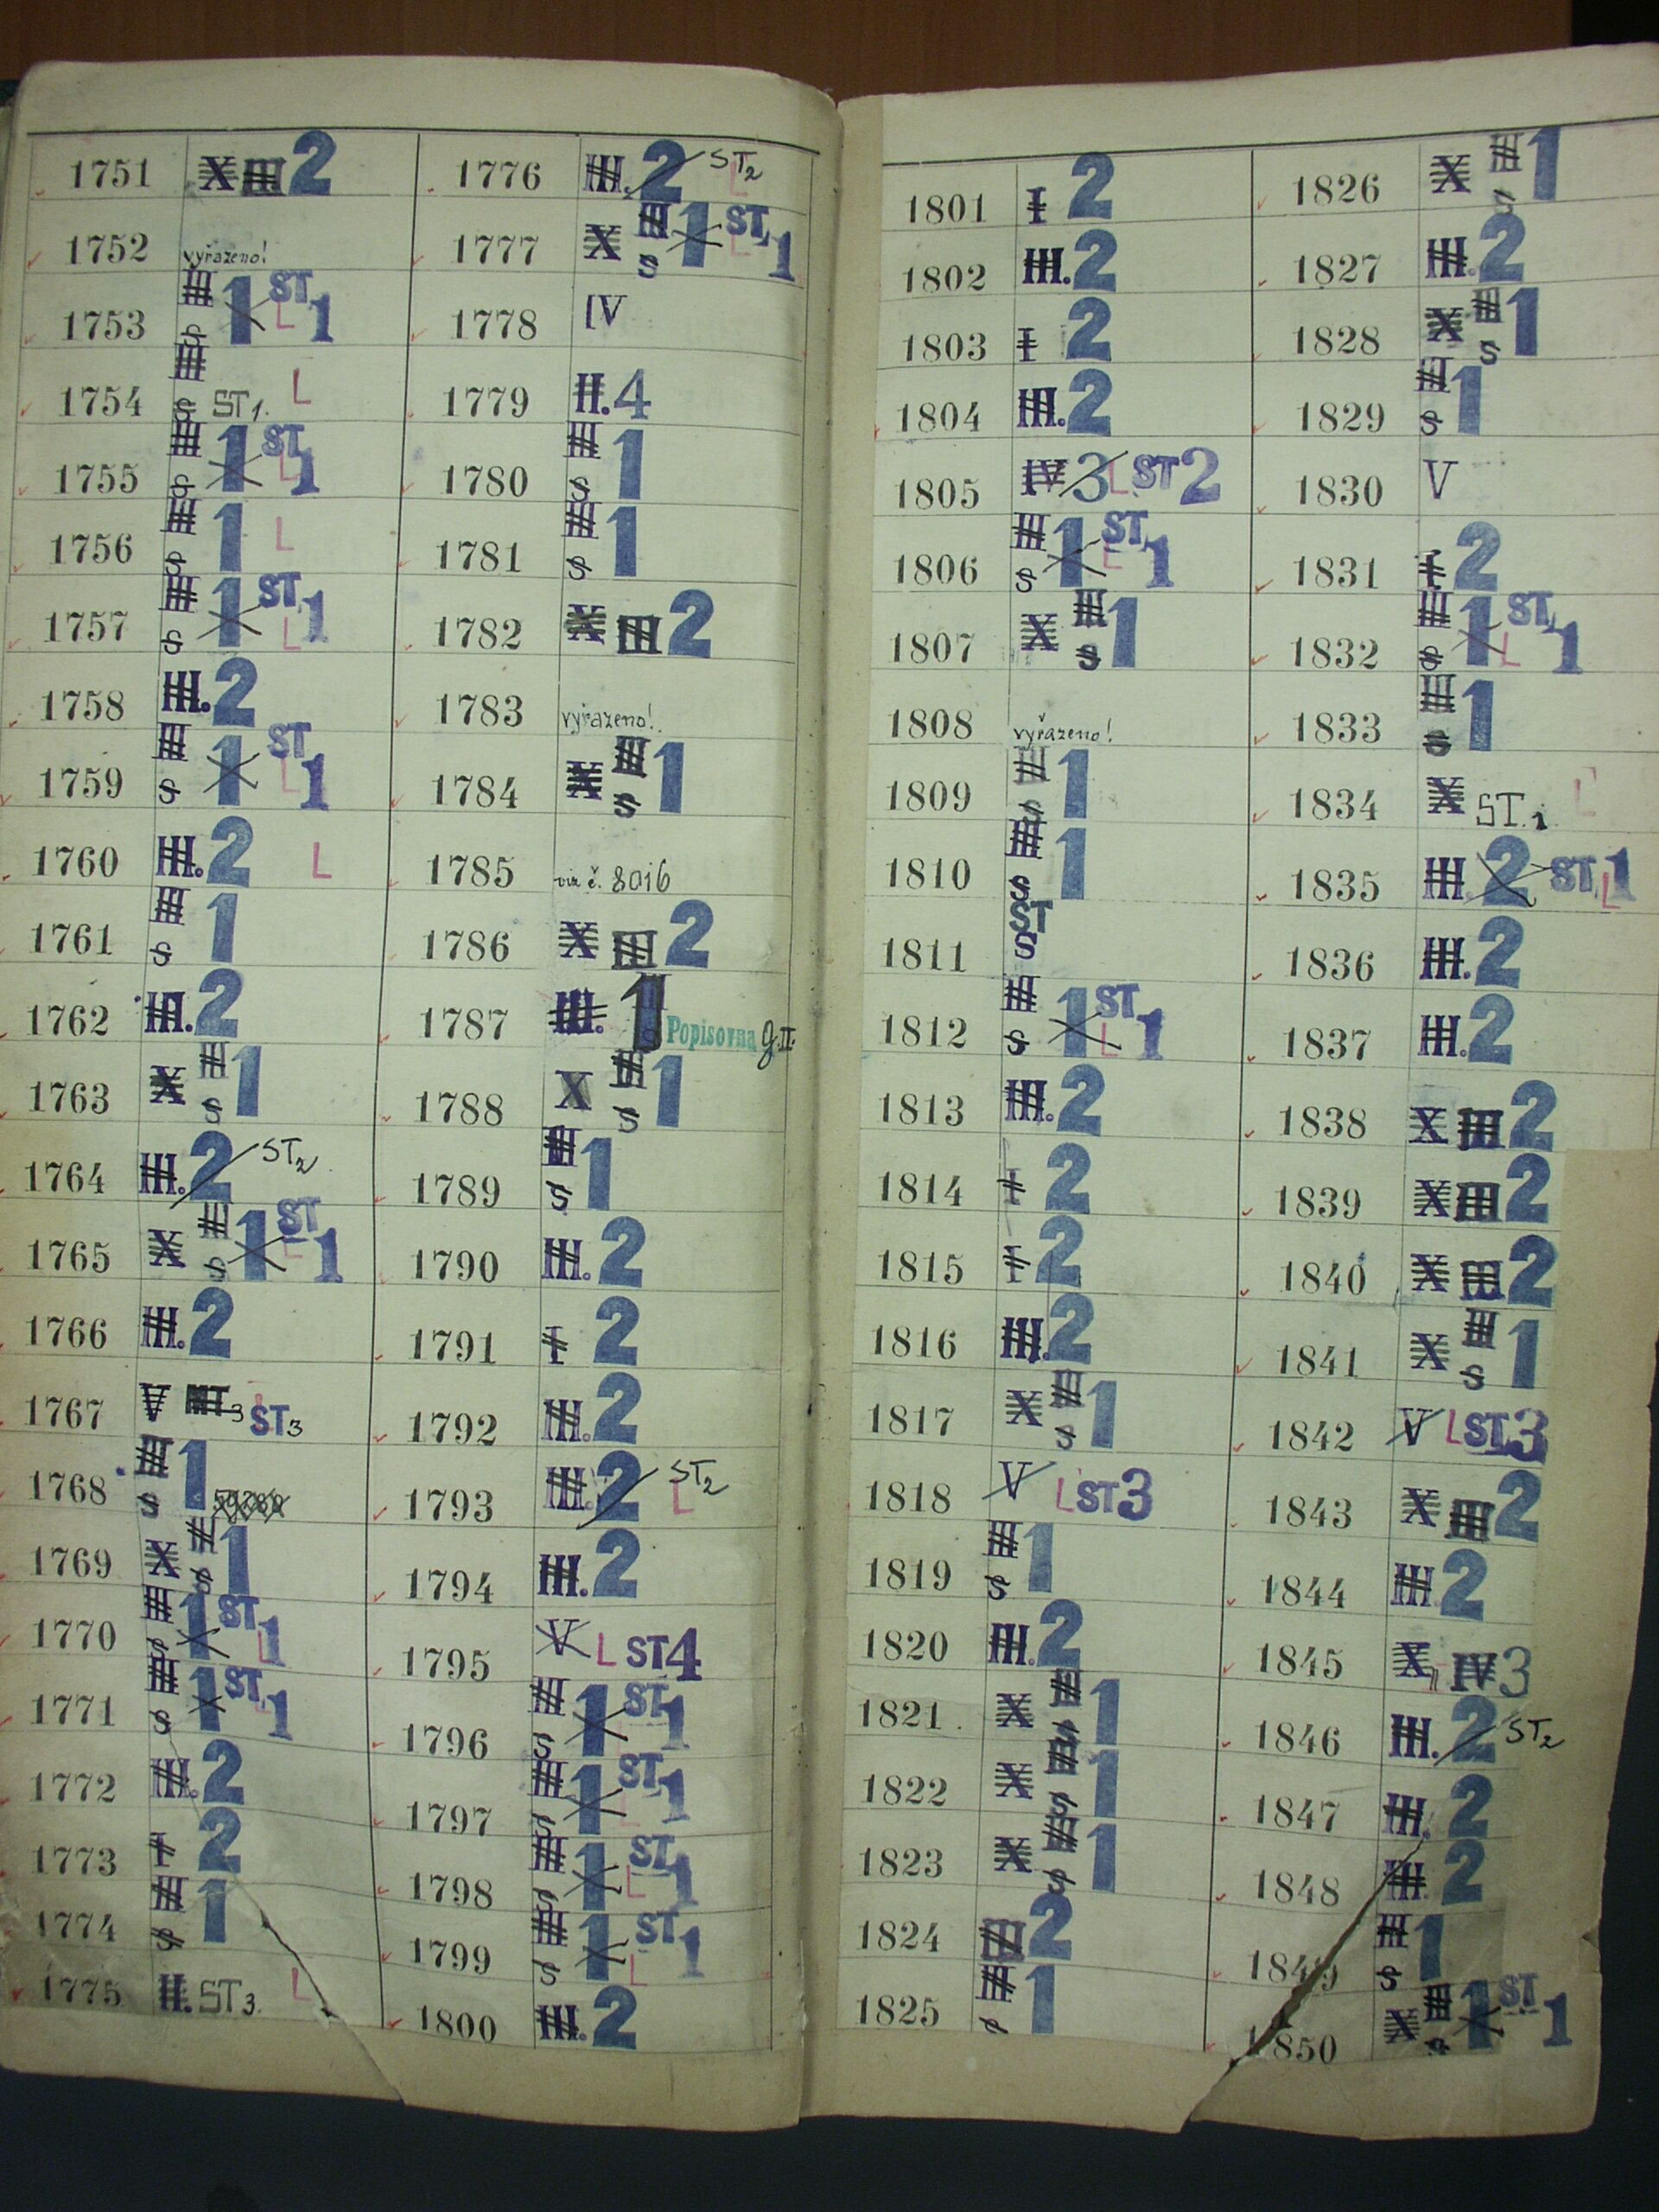 1751 X III 2
1752 vyřazeno!
1753 III S 1 ST 1 L
1754 III S ST 1. L
1755 III S 1 ST 1 L
1756 III S 1 L
1757 III S 1 ST 1 L
1758 III. 2
1759 III S 1 ST 1 L
1760 III. 2 L
1761 III S 1
1762 III. 2
1763 X III S 1
1764 III. 2 ST2
1765 X III S 1 ST 1 L
1766 III. 2
1767 V ST3
1768 III S 1
1769 X III S 1
1770 III S 1 ST 1 L
1771 III S 1 ST 1 L
1772 III. 2
1773 I 2
1774 III S 1
1775 II. ST3. L
1776 III. 2 ST2 L
1777 X III S 1 ST 1 L
1778 IV
1779 II. 4
1780 III S 1
1781 III S 1
1782 X III 2
1783 vyřazeno!
1784 X III S 1
1785 viz č. 8016
1786 X III 2
1787 III. 1 Popisovna g.II.
1788 X III S 1
1789 III S 1
1790 III. 2
1791 I 2
1792 III. 2
1793 III. 2 ST2 L
1794 III. 2
1795 V L ST4
1796 III S 1 ST 1 L
1797 III S 1 ST 1 L
1798 III S 1 ST 1 L
1799 III S 1 ST 1 L
1800 III. 2
1801 I 2
1802 III. 2
1803 I 2
1804 III. 2
1805 IV 3 L ST 2
1806 III S 1 ST 1 L
1807 X III S 1
1808 vyřazeno!
1809 III S 1
1810 III S 1
1811 ST S
1812 III S 1 ST 1 L
1813 III. 2
1814 I 2
1815 I 2
1816 III. 2
1817 X III S 1
1818 V L ST3
1819 III S 1
1820 III. 2
1821 X III S 1
1822 X III S 1
1823 X III S 1
1824 III 2
1825 III S 1
1826 X III S 1
1827 III. 2
1828 X III S 1
1829 III S 1
1830 V
1831 I 2
1832 III S 1 ST 1 L
1833 III S 1
1834 X ST.1 L
1835 III. 2 ST 1 L
1836 III. 2
1837 III. 2
1838 X III 2
1839 X III 2
1840 X III 2
1841 X III S 1
1842 V L ST3
1843 X III 2
1844 III. 2
1845 X IV 3
1846 III. 2 ST2
1847 III. 2
1848 III. 2
1849 III S 1
1850 X III S 1 ST 1